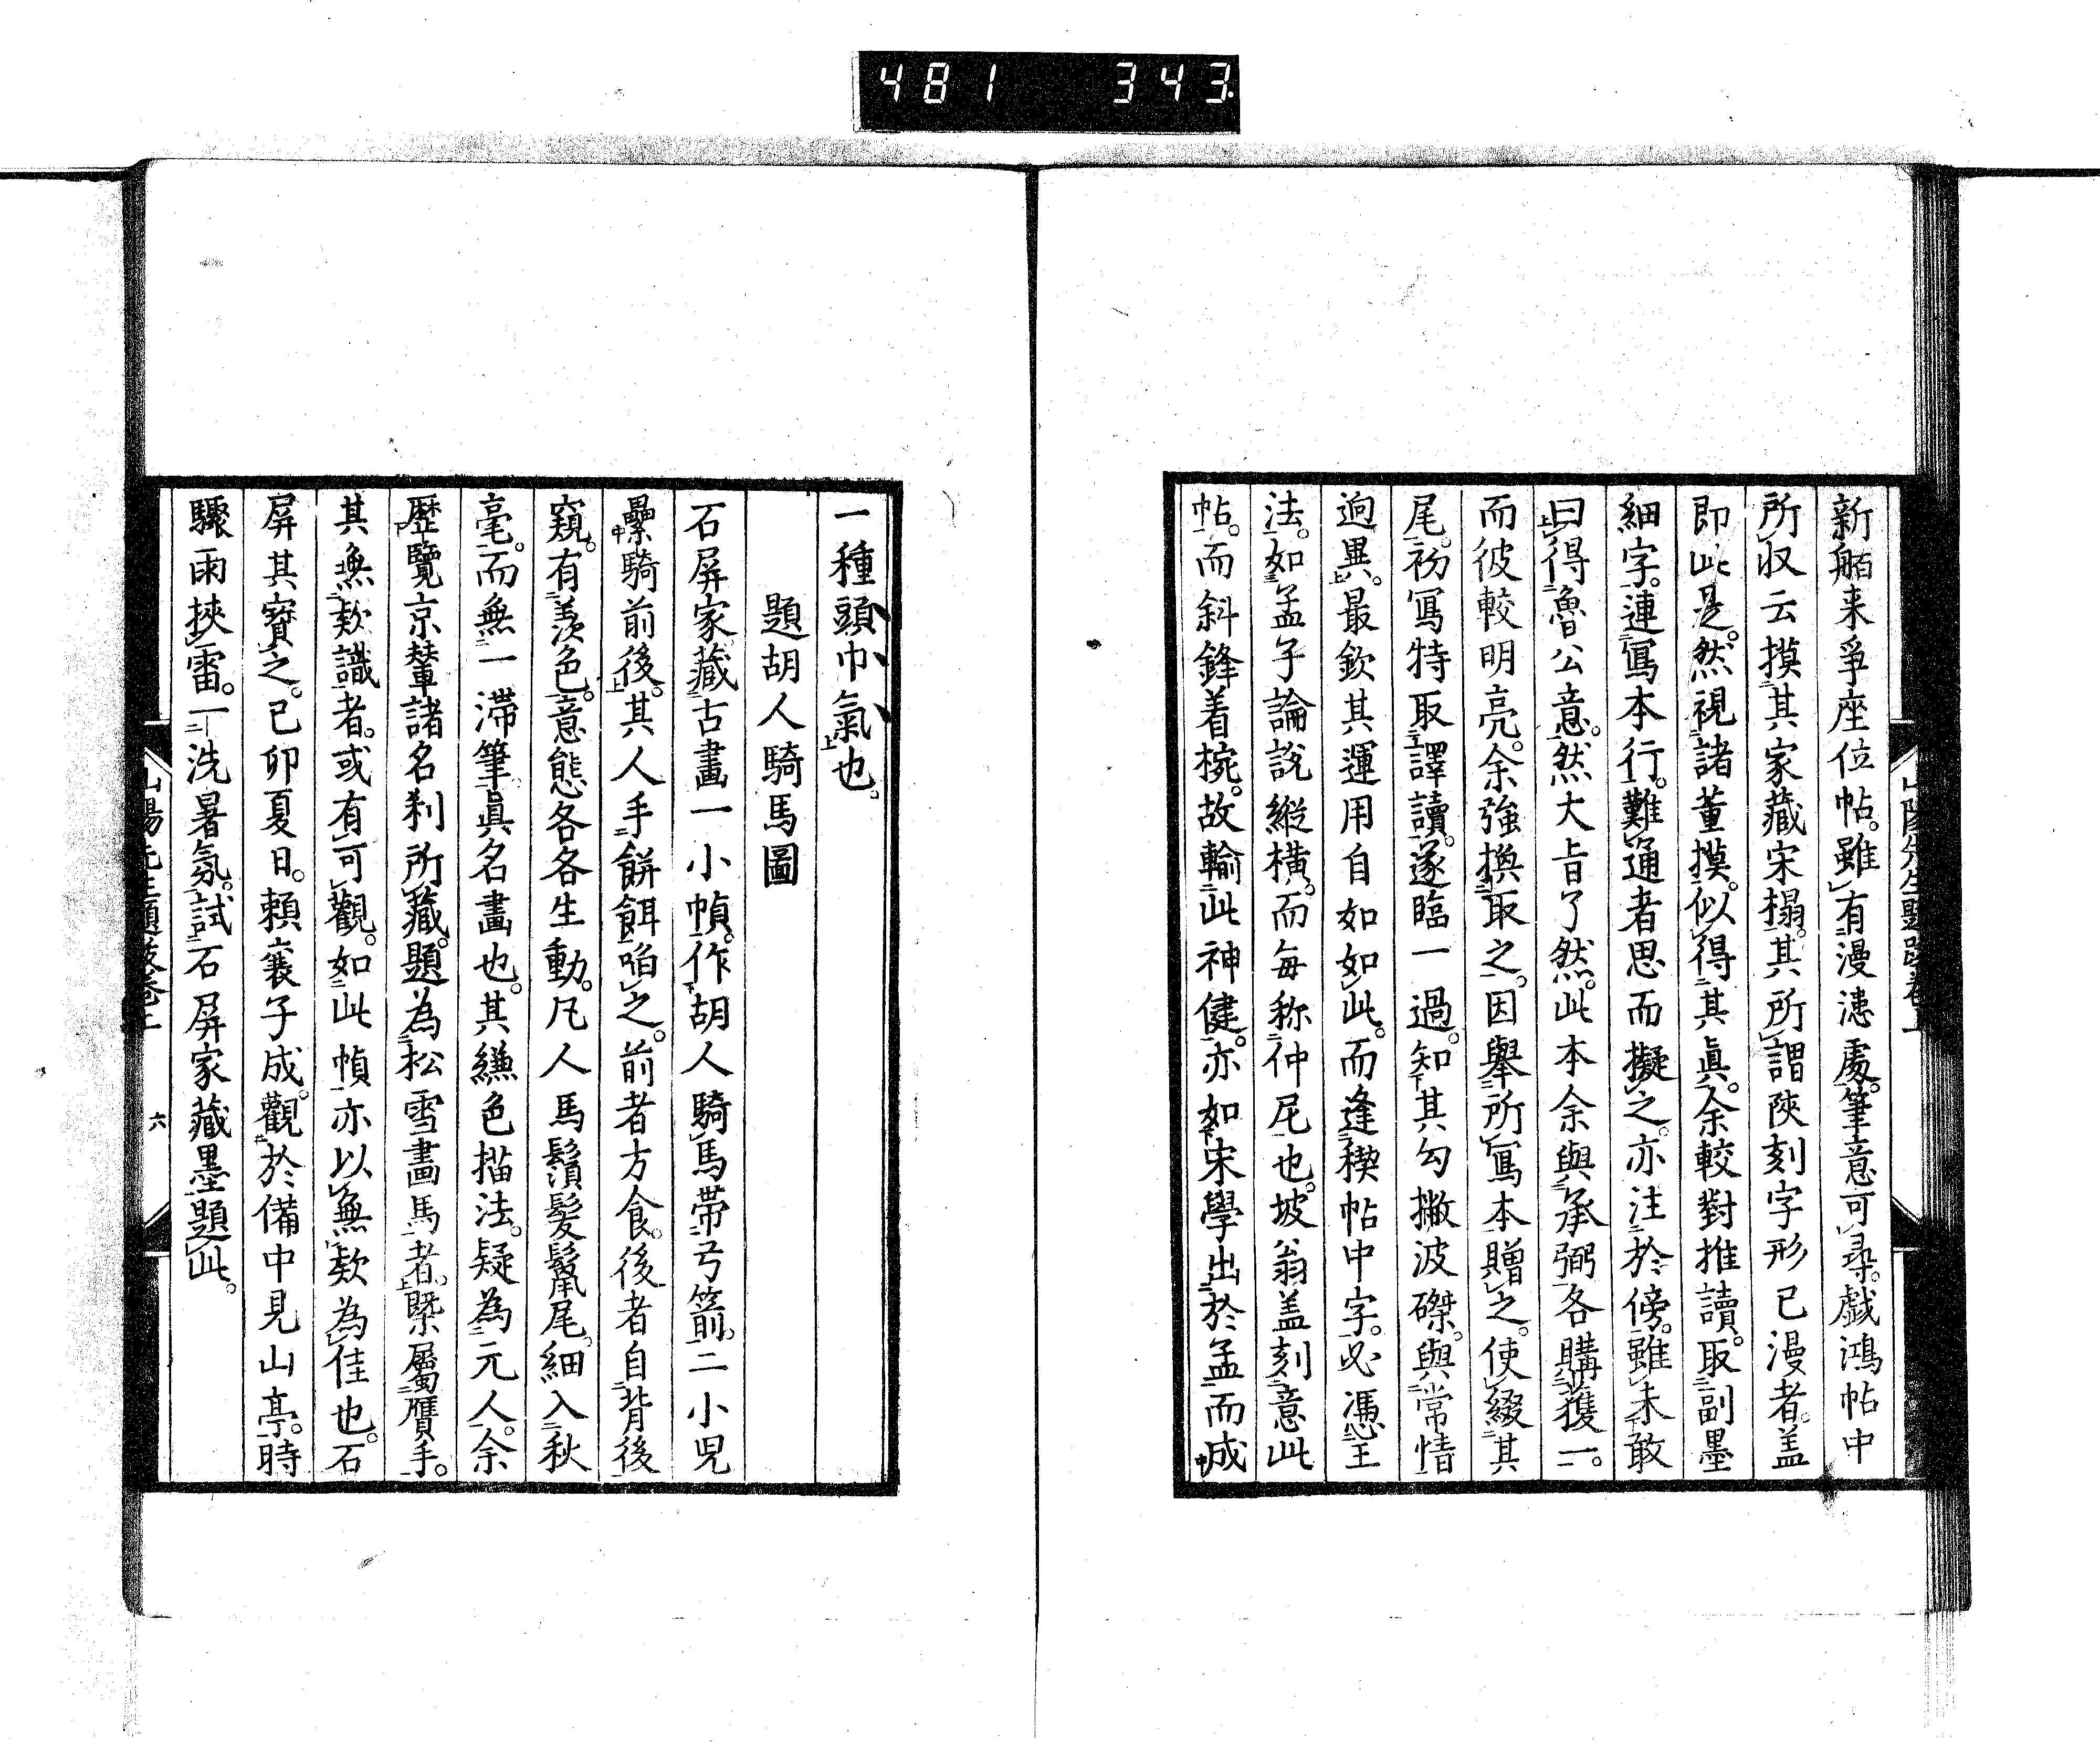 481 343
新舶来爭座位帖。雖有漫漶處。筆意可尋。戯鴻帖中
所収云摸其家藏宋搨。其所謂陝刻字形已漫者。盖
即此是。然視諸董摸。似得其眞。余較對推讀。取副墨
細字。連寫本行。難通者思而擬之。亦注於傍。雖未敢
曰得魯公意。然大旨了然。此本余與承弼各購獲一。
而彼較明亮。余強換取之。因舉所寫本贈之。使綴其
尾。初寫特取譯讀。遂臨一過。知其勾撇波磔。與常情
逈異。最欽其運用自如如此。而逢稧帖中字。必憑王
法。如孟子論說縱橫。而毎称仲尼也。坡翁盖刻意此
帖。而斜鋒着椀。故輸此神健。亦如宋學出於孟而成
山陽先生題跋卷上
一種頭巾氣也。
題胡人騎馬圖
石屏家藏古畫一小幀。作胡人騎馬帶弓箭。二小兒
纍騎前後。其人手餅餌啗之。前者方食。後者自背後
窺。有羨色。意態各各生動。凡人馬鬚髮鬣尾。細入秋
毫。而無一滯筆。眞名畫也。其縑色描法。疑為元人。余
歷覽京輦諸名刹所藏。題為松雪畫馬者。槩屬贋手。
其無欵識者。或有可觀。如此幀亦以無欵為佳也。石
屏其寶之。己卯夏日。賴襄子成觀於備中見山亭。時
驟雨挾雷。一洗暑氛。試石屏家藏墨題此。
六